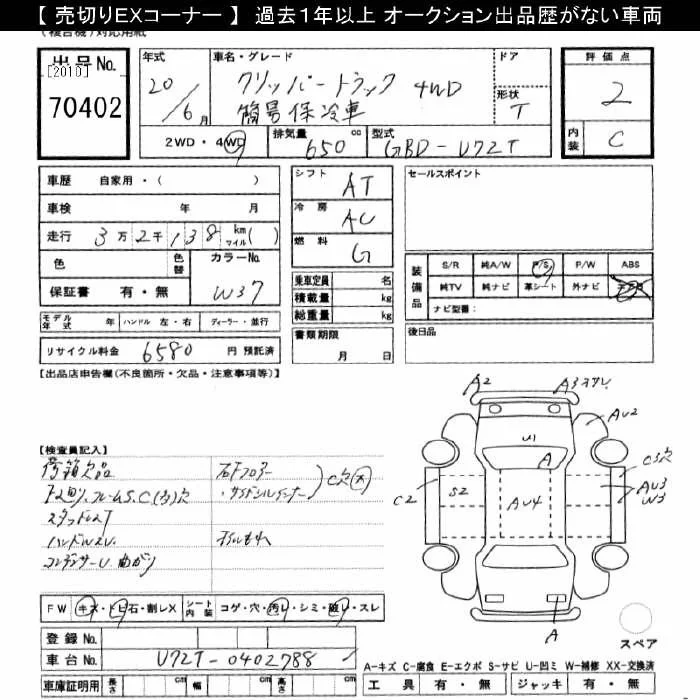 【 売切りEXコーナー 】 過去1年以上 オークション出品歴がない車両
(複合機)対応用紙
出品No. [2010] 70402
年式 20/6月
車名・グレード クリッパートラック 4WD 簡易保冷車
ドア
形状 T
評価点 2
内装 C
2WD・4WD
排気量 650 cc
型式 GBD-U72T
車歴 自家用・( )
車検 年 月
走行 3万2千138 km マイル( )
色 色替 カラーNo. W37
保証書 有・無
モデル年式 年 ハンドル 左・右 ディーラー・並行
リサイクル料金 6580 円 預託済
シフト AT
冷房 AC
燃料 G
乗車定員 名
積載量 kg
総重量 kg
書類期限 月 日
セールスポイント
装備品 S/R 純A/W P/S P/W ABS
純TV 純ナビ 革シート 外ナビ
ナビ型番:
後日品
【出品店申告欄(不良箇所・欠品・注意事項等)】
【検査員記入】
荷箱欠品
下回り、フレームS、C(3)穴
スタッドレスT
ハンドルスレ
コンデンサーU 曲がり
右Fフロアー
・サイドシルインナー
C穴(大)
オイルもれ
A2 A3スリ
AU2
U1
A
C3穴
C2 S2 AU4 AU3
W3
A
スペア
FW キズ・トビ石・割レX シート内装 コゲ・穴・汚レ・シミ・破レ・スレ
登録No.
車台No. U72T-0402788
車庫証明用 長さ cm 幅 cm 高さ cm
A-キズ C-腐食 E-エクボ S-サビ U-凹ミ W-補修 XX-交換済
工具 有・無 ジャッキ 有・無